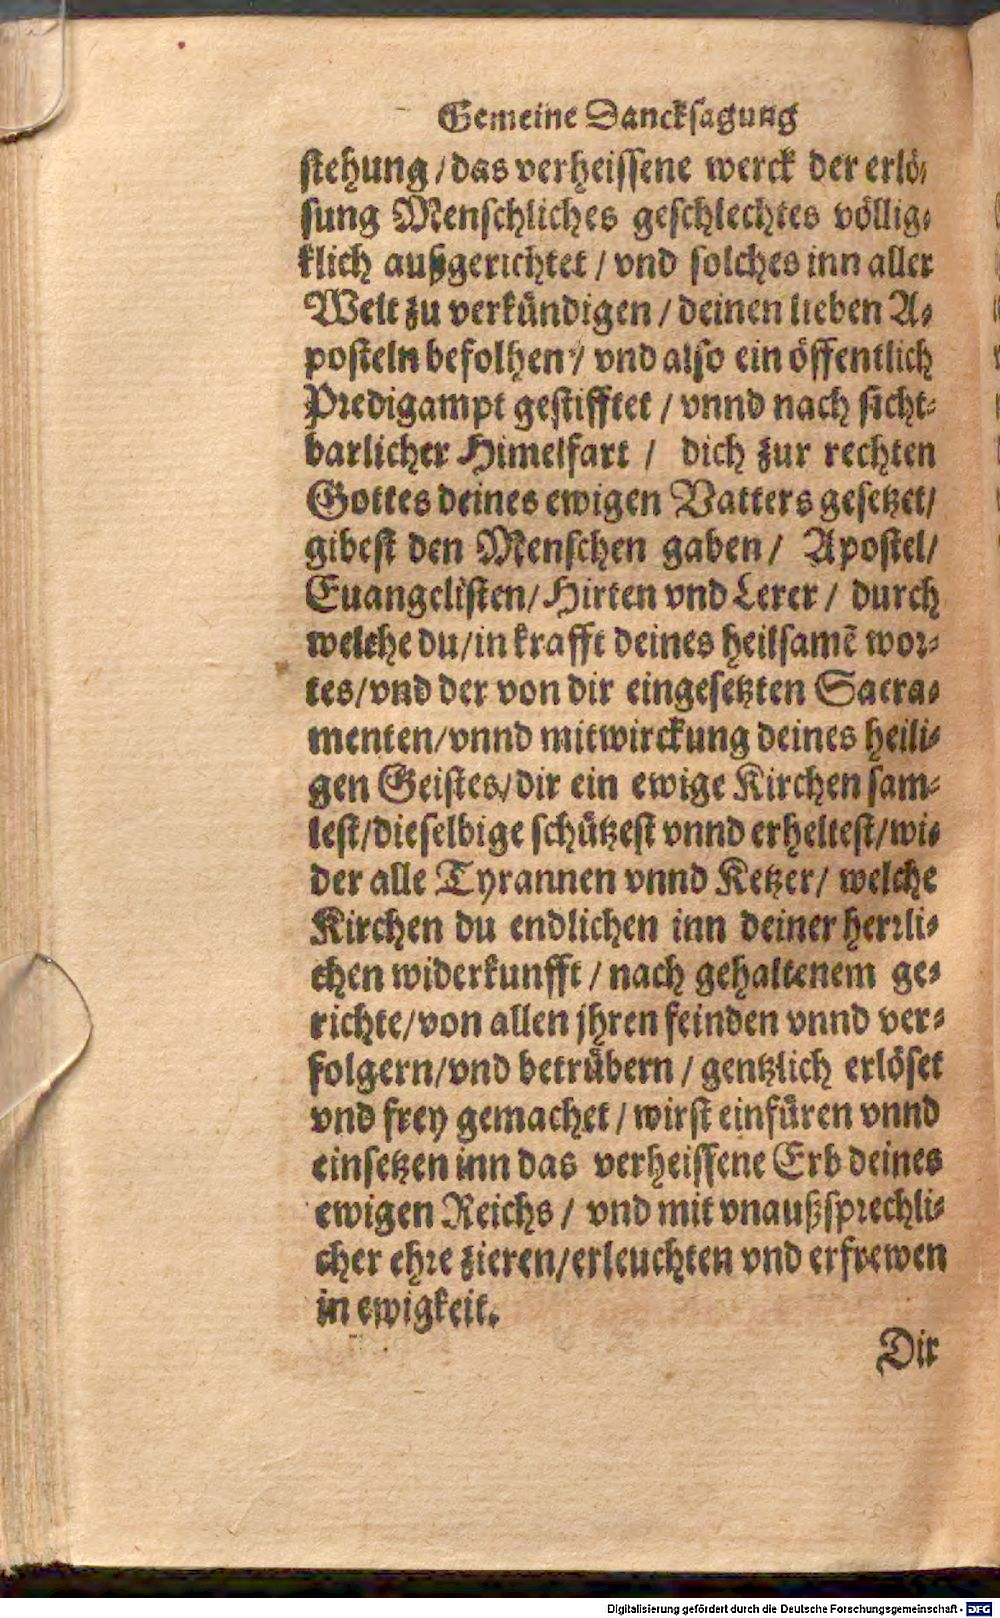 Gemeine Dancksagung
stehung / das verheissene werck der erlö⸗
sung Menschliches geschlechtes völlig⸗
klich außgerichtet / vnd solches inn aller
Welt zu verkündigen / deinen lieben A⸗
posteln befolhen / vnd also ein öffentlich
Predigampt gestifftet / vnnd nach sicht⸗
barlicher Himelfart / dich zur rechten
Gottes deines ewigen Vatters gesetzet /
gibest den Menschen gaben / Apostel /
Euangelisten / Hirten vnd Lerer / durch
welche du / in krafft deines heilsamē wor⸗
tes / vnd der von dir eingesetzten Sacra⸗
menten / vnnd mitwirckung deines heili⸗
gen Geistes / dir ein ewige Kirchen sam⸗
lest / dieselbige schützest vnnd erheltest / wi⸗
der alle Tyrannen vnnd Ketzer / welche
Kirchen du endlichen inn deiner herrli⸗
chen widerkunfft / nach gehaltenem ge⸗
richte / von allen jhren feinden vnnd ver⸗
folgern / vnd betrübern / gentzlich erlöset
vnd frey gemachet / wirst einfüren vnnd
einsetzen inn das verheissene Erb deines
ewigen Reichs / vnd mit vnaußsprechli⸗
cher ehre zieren / erleuchten vnd erfrewen
in ewigkeit.
Dir
Digitalisierung gefördert durch die Deutsche Forschungsgemeinschaft - DFG